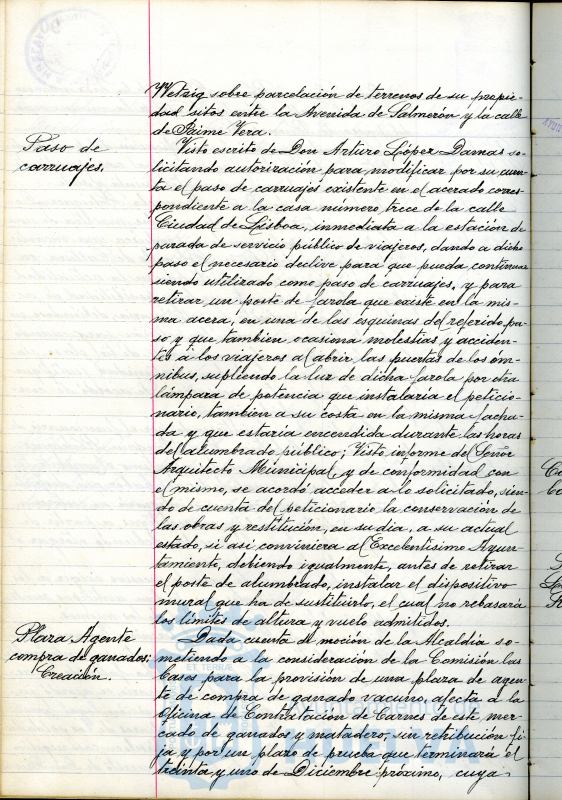 Wetzig sobre parcelación de terrenos de su propie-
dad sitos entre la Avenida de Salmerón y la calle
de Jaime Vera.
Paso de
carruajes.
Visto escrito de Don Arturo López Damas so-
licitando autorización para modificar por su cuen-
ta el paso de carruajes existente en el acerado corres-
pondiente a la casa número trece de la calle
Ciudad de Lisboa, inmediata a la estación de
parada de servicio público de viajeros, dando a dicho
paso el necesario declive para que pueda continuar
siendo utilizado como paso de carruajes, y para
retirar un poste de farola que existe en la mis-
ma acera, en una de las esquinas del referido pa-
so y que tambien ocasiona molestias y acciden-
tes a los viajeros al abrir las puertas de los óm-
nibus, supliendo la luz de dicha farola por otra
lámpara de potencia que instalaría el peticio-
nario, tambien a su costa en la misma facha-
da y que estaría encendida durante las horas
del alumbrado público; Visto informe del Señor
Arquitecto Municipal, y de conformidad con
el mismo, se acordó acceder a lo solicitado, sien-
do de cuenta del peticionario la conservación de
las obras y restitución, en su dia, a su actual
estado, si asi conviniera al Excelentísimo Ayun-
tamiento, debiendo igualmente, antes de retirar
el poste de alumbrado, instalar el dispositivo
mural que ha de sustituirlo, el cual no rebasará
los límites de altura y vuelo admitidos.
Plaza Agente
compra de ganados;
Creación.
Dada cuenta de moción de la Alcaldía so-
metiendo a la consideración de la Comisión las
bases para la provisión de una plaza de agen-
te de compra de ganado vacuno, afecta a la
Oficina de Contratación de Carnes de este mer-
cado de ganados y matadero, sin retribución fi-
ja y por un plazo de prueba que terminará el
treinta y uno de Diciembre próximo, cuya